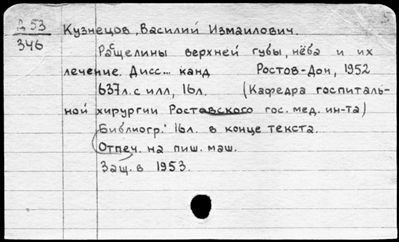 Д 53
346
Кузнецов, Василий Измаилович.
Расщелины верхней губы, нёба и их
лечение. Дисс... канд Ростов-Дон, 1952
637л. с илл, 16л. (Кафедра госпиталь-
ной хирургии Ростовского гос. мед. ин-та)
Библиогр.: 16л. в конце текста.
Отпеч. на пиш. маш.
Защ. в 1953.